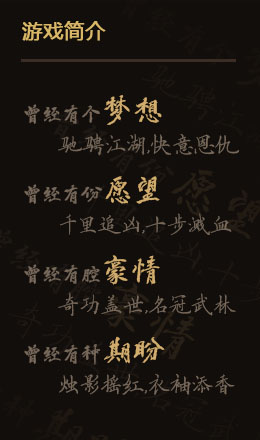 游戏简介
曾经有个梦想
驰骋江湖,快意恩仇
曾经有份愿望
千里追凶,十步溅血
曾经有腔豪情
奇功盖世,名冠武林
曾经有种期盼
烛影摇红,衣袖添香